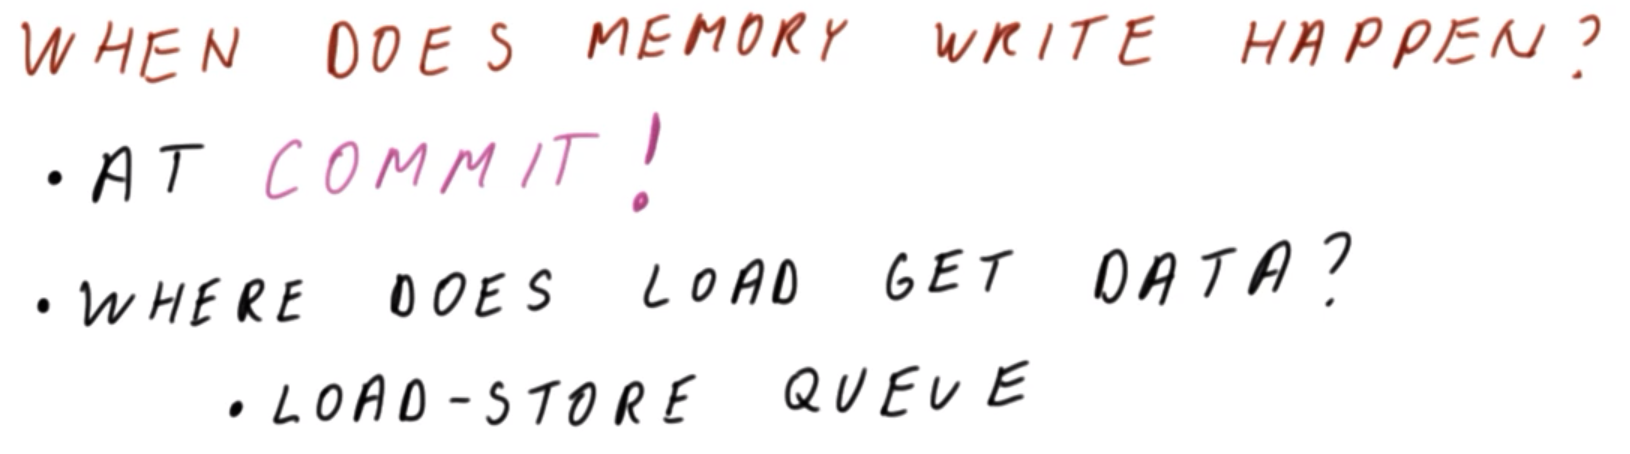 WHEN DOES MEMORY WRITE HAPPEN?
• AT COMMIT!
• WHERE DOES LOAD GET DATA?
• LOAD-STORE QUEUE